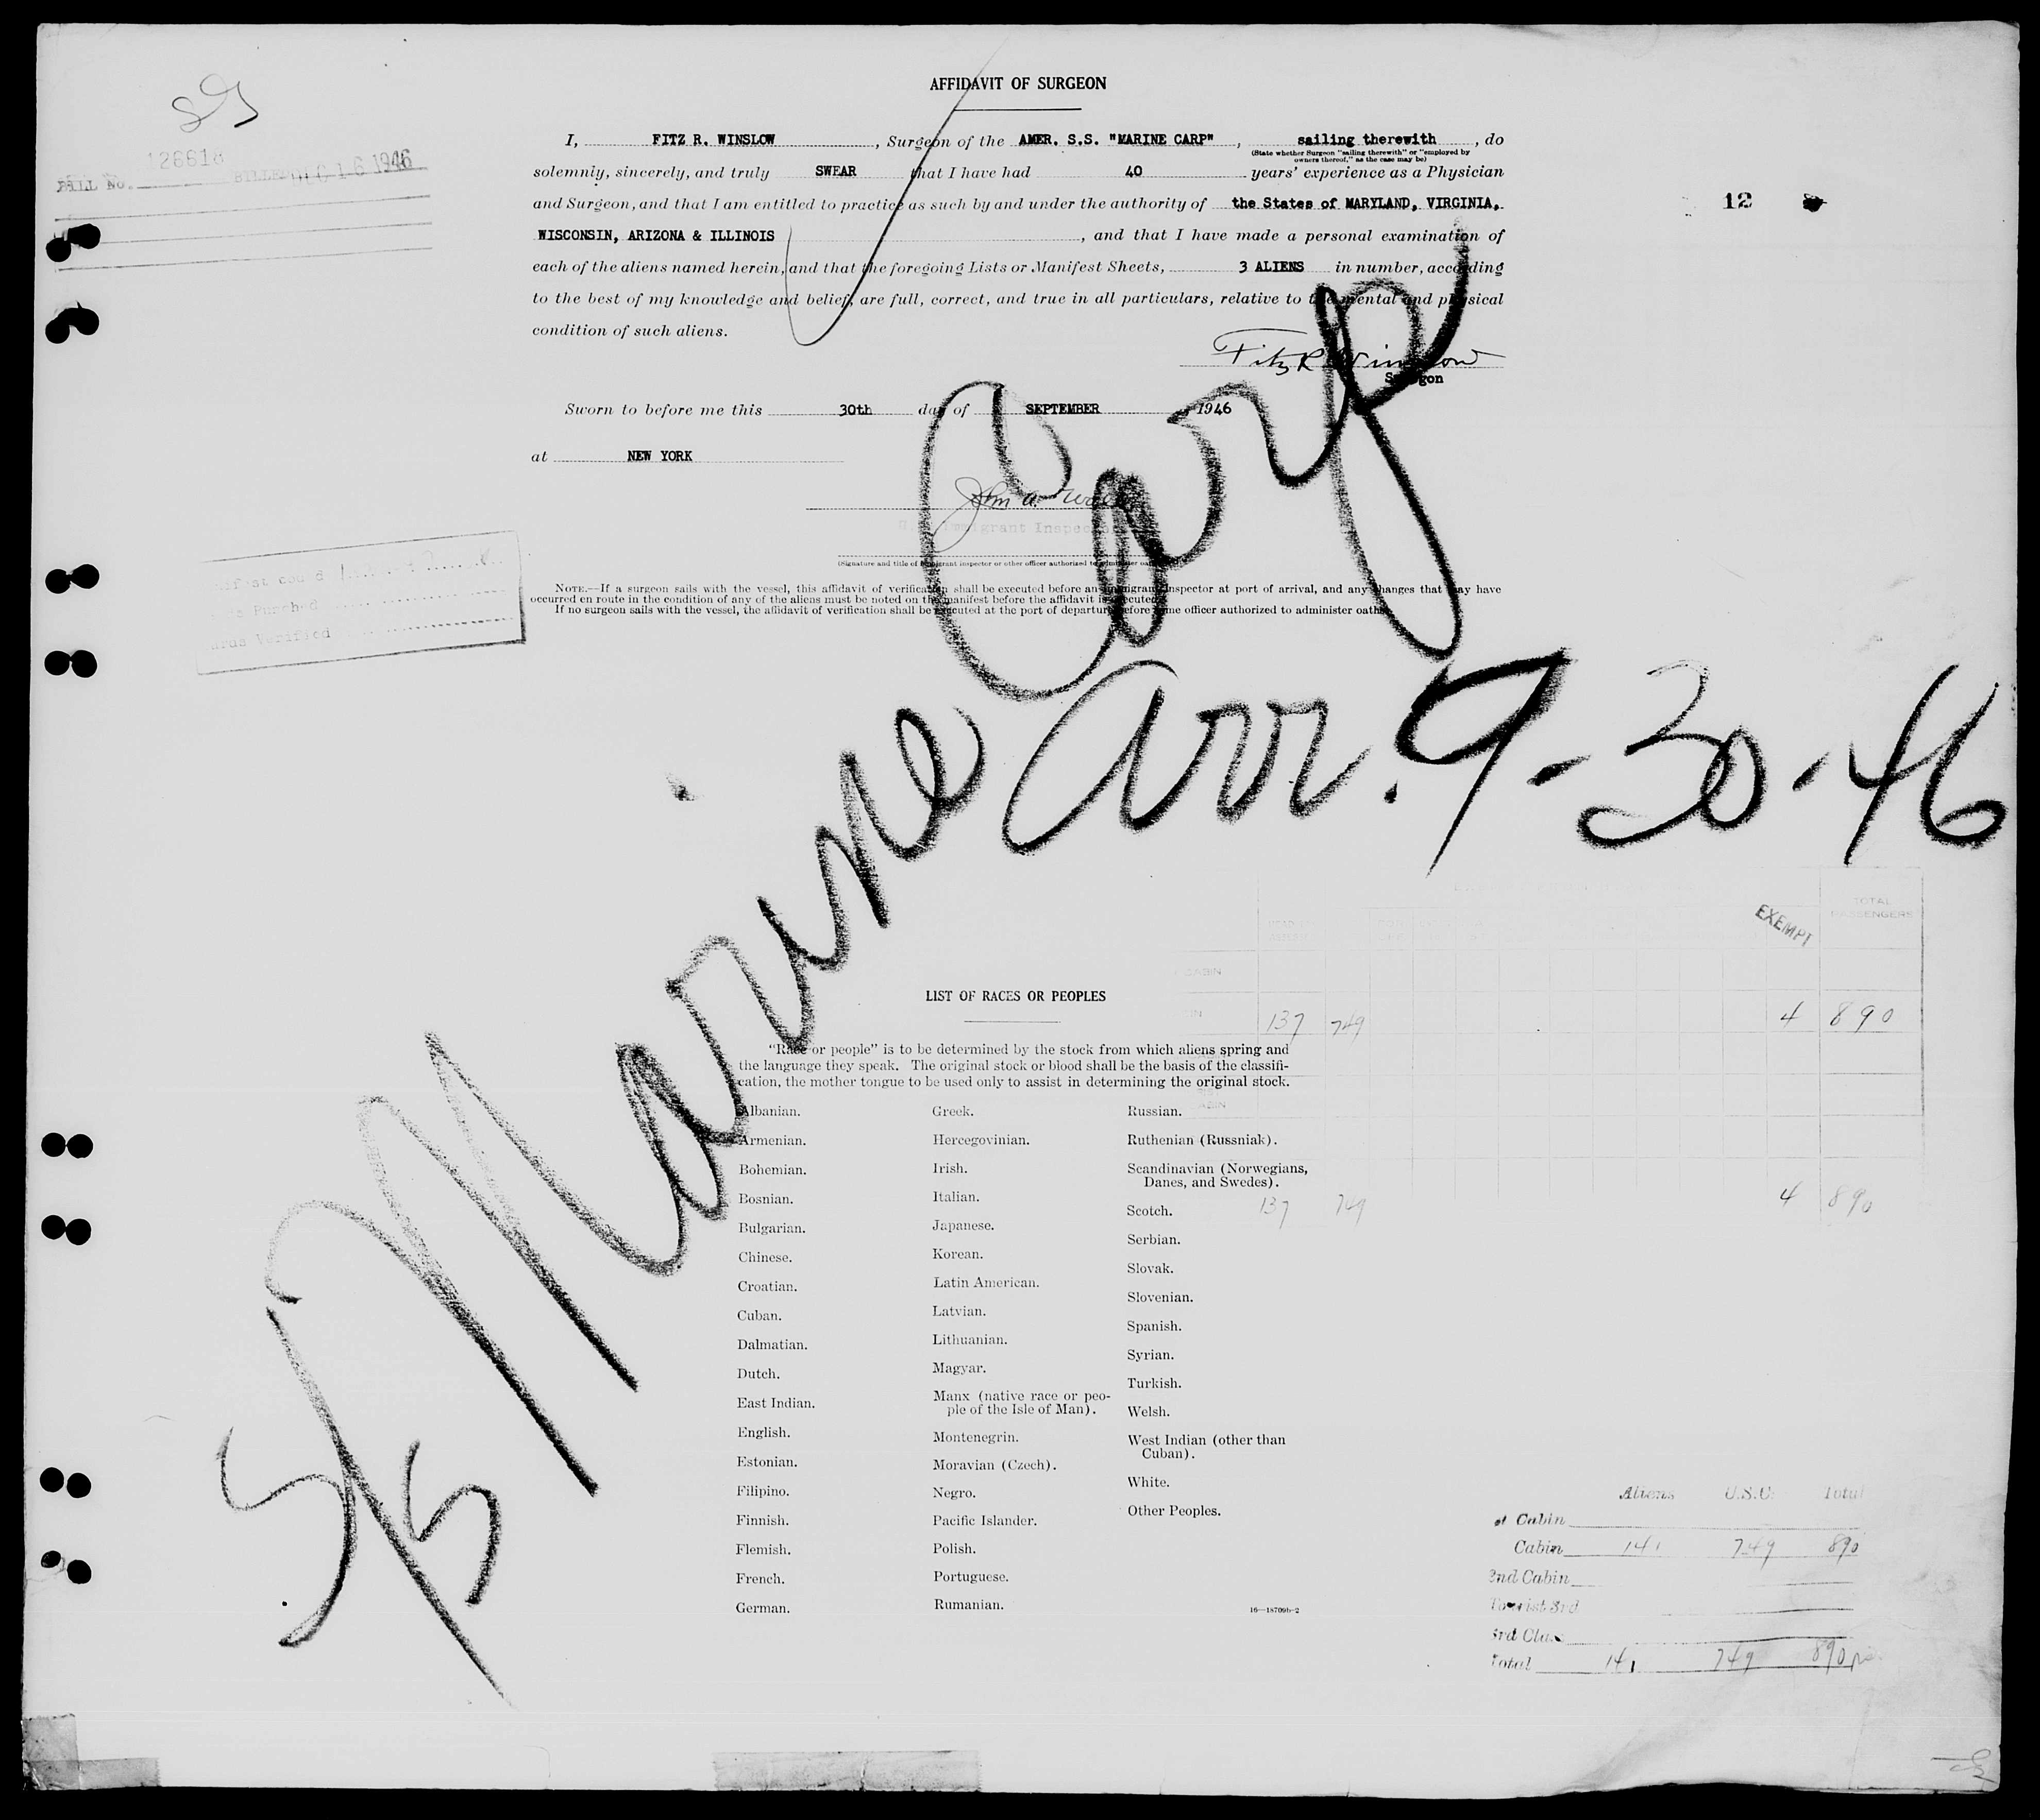 AFFIDAVIT OF SURGEON
I, FITZ R. WINSLOW, Surgeon of the AMER. S.S. "MARINE CARP", sailing therewith, do
(State whether Surgeon "sailing therewith" or "employed by
owners thereof," as the case may be)
solemnly, sincerely, and truly SWEAR that I have had 40 years' experience as a Physician
and Surgeon, and that I am entitled to practice as such by and under the authority of the States of MARYLAND, VIRGINIA,
WISCONSIN, ARIZONA & ILLINOIS, and that I have made a personal examination of
each of the aliens named herein, and that the foregoing Lists or Manifest Sheets, 3 ALIENS in number, according
to the best of my knowledge and belief, are full, correct, and true in all particulars, relative to the mental and physical
condition of such aliens.
Fitz R Winslow
Surgeon
BILL No. 126618 BILLED DEC 16 1946
12
Sworn to before me this 30th day of SEPTEMBER 1946
at NEW YORK
John A.
U.S. Immigrant Inspector
(Signature and title of immigrant inspector or other officer authorized to administer oath)
NOTE.—If a surgeon sails with the vessel, this affidavit of verification shall be executed before an immigrant inspector at port of arrival, and any changes that may have
occurred en route in the condition of any of the aliens must be noted on the manifest before the affidavit is executed.
If no surgeon sails with the vessel, the affidavit of verification shall be executed at the port of departure before some officer authorized to administer oaths.
Punched
Verified
S/S Marine Carp
arr. 9-30-46
EXEMPT
TOTAL
PASSENGERS
CABIN
137 749 4 890
CABIN
137 749 4 890
LIST OF RACES OR PEOPLES
"Race or people" is to be determined by the stock from which aliens spring and
the language they speak. The original stock or blood shall be the basis of the classifi-
cation, the mother tongue to be used only to assist in determining the original stock.
Albanian.
Armenian.
Bohemian.
Bosnian.
Bulgarian.
Chinese.
Croatian.
Cuban.
Dalmatian.
Dutch.
East Indian.
English.
Estonian.
Filipino.
Finnish.
Flemish.
French.
German.
Greek.
Hercegovinian.
Irish.
Italian.
Japanese.
Korean.
Latin American.
Latvian.
Lithuanian.
Magyar.
Manx (native race or peo-
ple of the Isle of Man).
Montenegrin.
Moravian (Czech).
Negro.
Pacific Islander.
Polish.
Portuguese.
Rumanian.
Russian.
Ruthenian (Russniak).
Scandinavian (Norwegians,
Danes, and Swedes).
Scotch.
Serbian.
Slovak.
Slovenian.
Spanish.
Syrian.
Turkish.
Welsh.
West Indian (other than
Cuban).
White.
Other Peoples.
16—18709b-2
Aliens U.S.C. Total
Cabin
Cabin 141 749 890
2nd Cabin
Tourist 3rd
3rd Class
Total 141 749 890